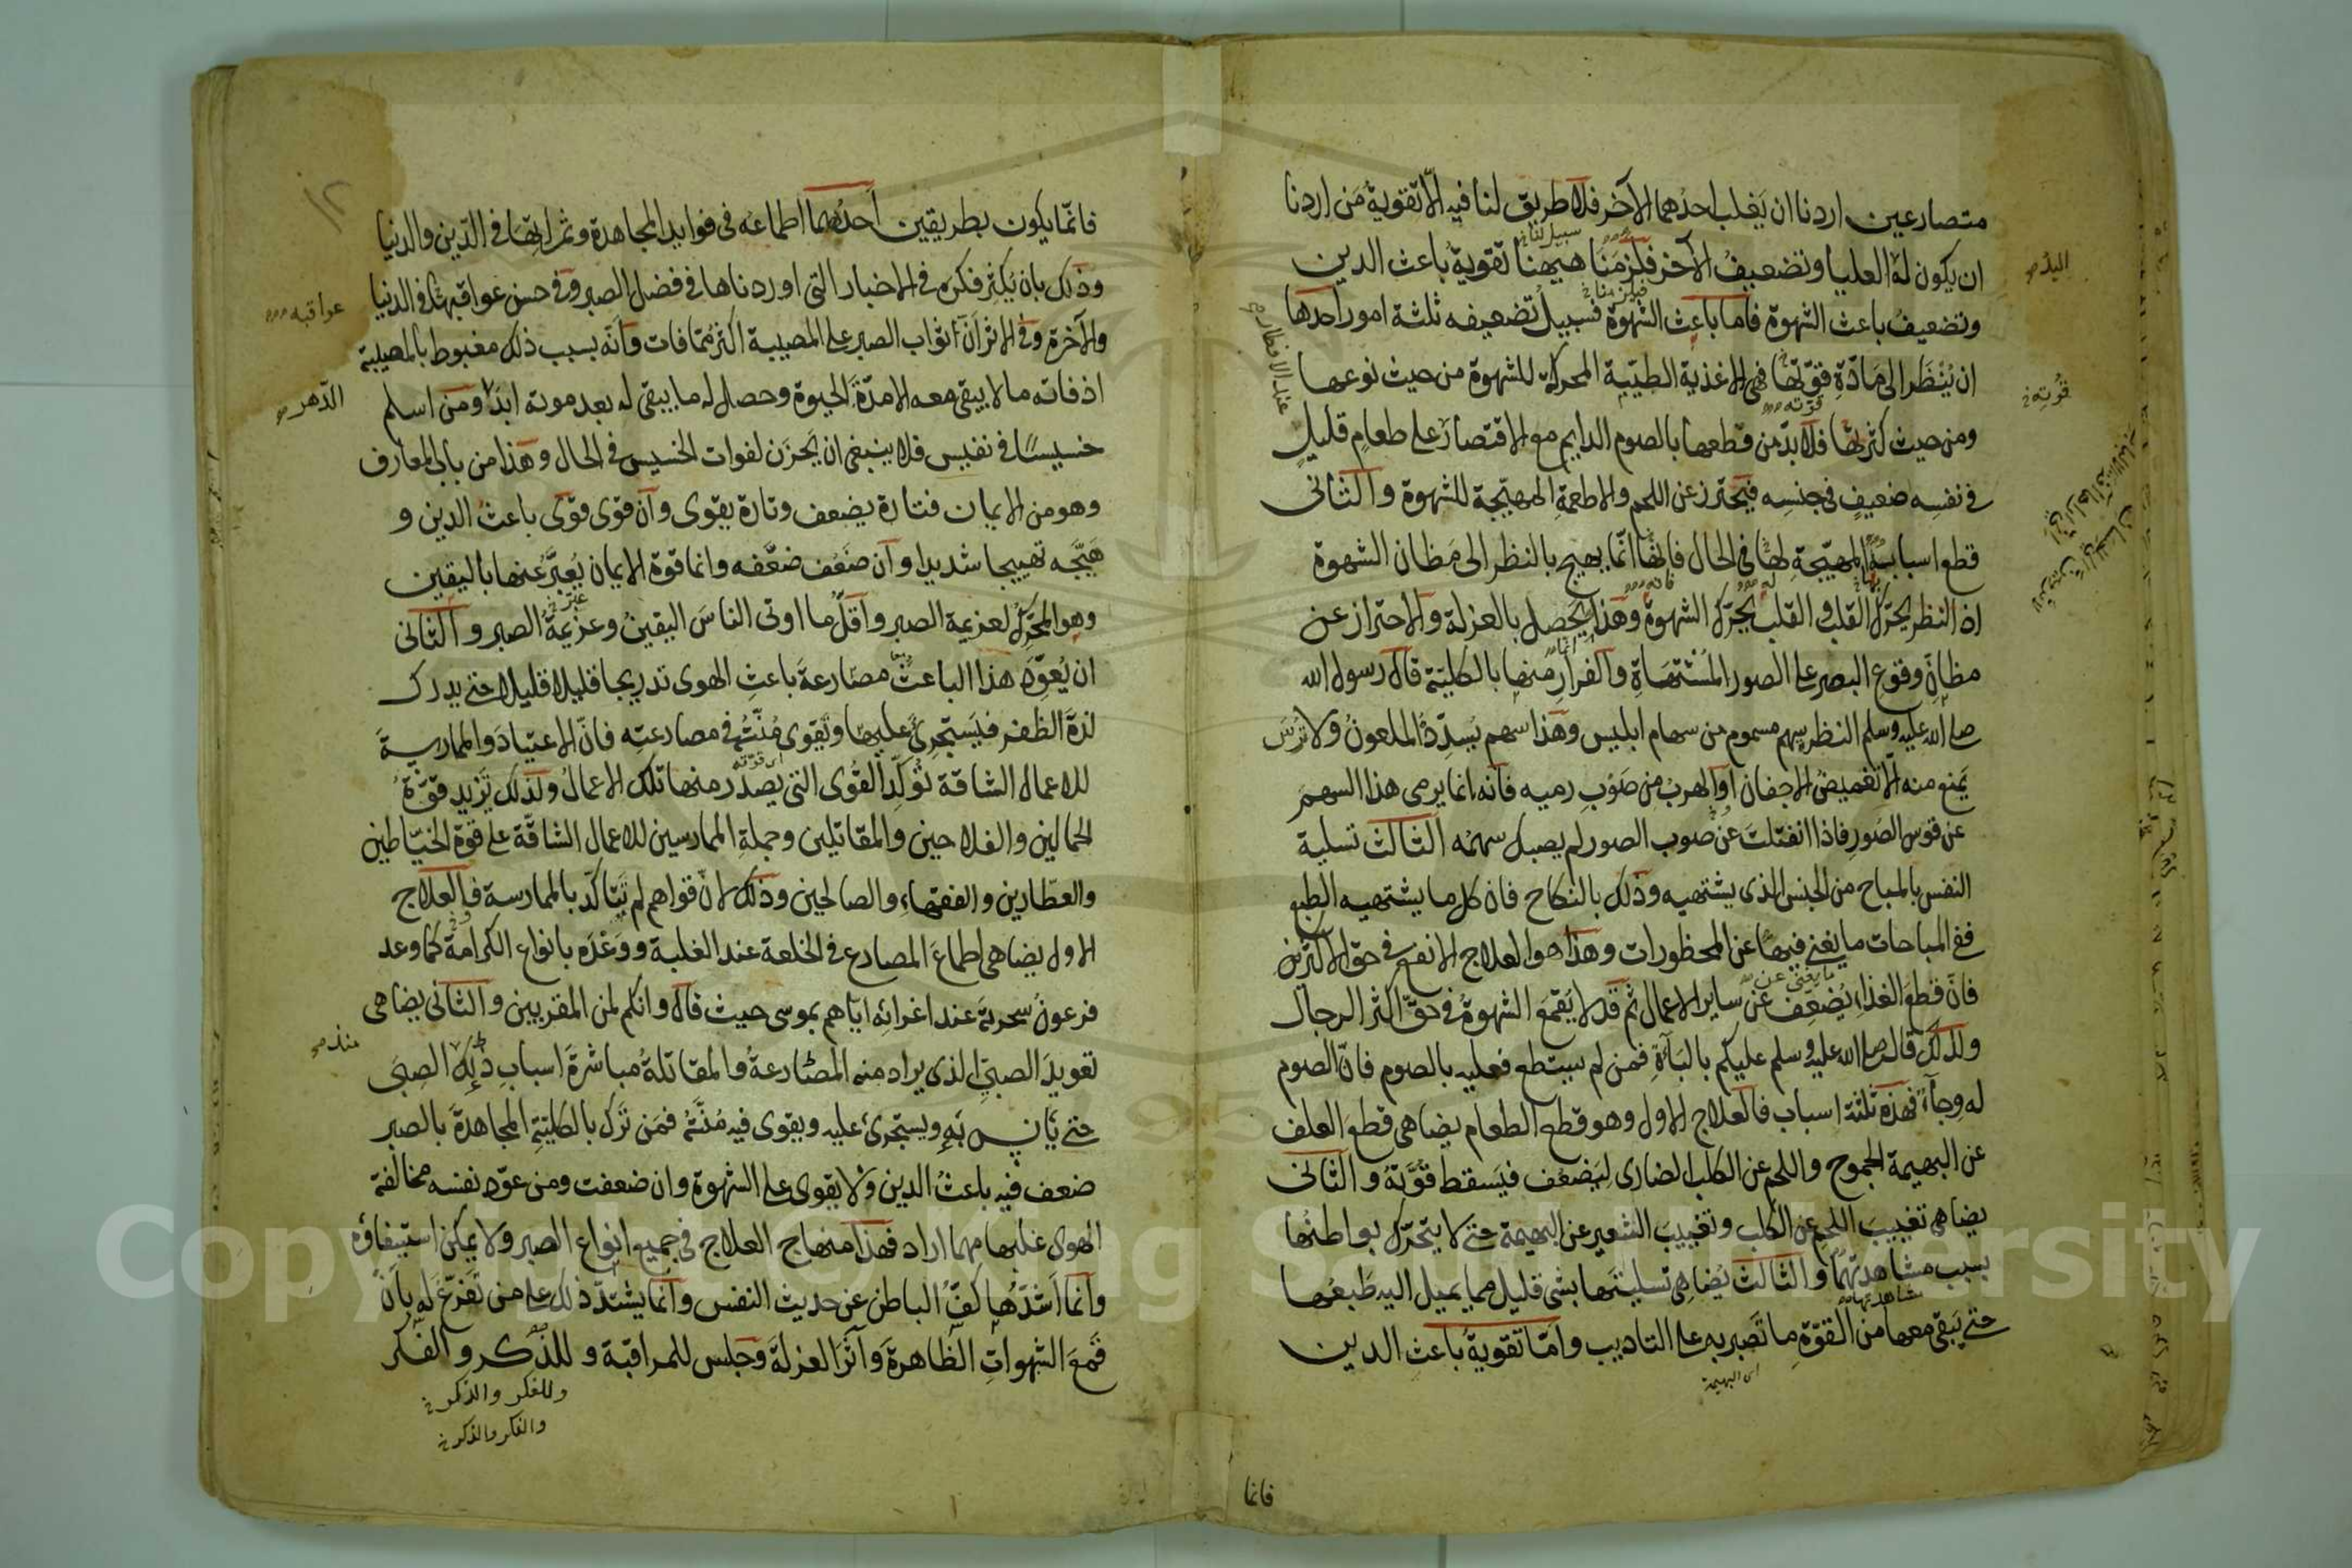 متصارعين اردنا ان يَغلب احدُهما الآخر فلا طريق لنا فيه الّا تقويةُ مَن اردنا
ان يكون لهُ العليا وتضعيفُ الآخر فلزمَنا هيهنا تقويةُ باعث الدين
وتضعيفُ باعث الشهوة فاما باعث الشهوة فسبيلُ تضعيفه ثلثة امور احدها
ان يُنْظَر الى مَادّةِ قوّتها فهى الاغذية الطيّبة المحركة للشهوة من حيث نوعها
ومن حيث كثرتها فلا بدّ من قطعها بالصوم الدايم مع الاقتصار على طعامٍ قليلٍ
فى نفسِه ضعيفٍ فى جنسِه فيَحترز عن اللحم والاطعمةِ المهيّجة للشهوة والثانى
قطع اسبابه المهيّجةِ لها فى الحال فانها انّما يهيج بالنظر الى مَظان الشهوة
اذ النظر يحرّك القلب والقلب يحرّك الشهوة وهذا يحصل بالعزلة والاحتراز عن
مظانِّ وقوع البصر على الصور المُشْتهَاةِ والفرارِ منها بالكلية قال رسول الله
صلى الله عليه وسلم النظر سهم مسموم من سهام ابليس وهذا سهم يُسدّدُ الملعونُ ولا تُرسَ
يَمنع منه الّا تغميضُ الاجفان او الهربُ مِن صَوْبِ رميه فانه انما يرمى هذا السهمَ
عن قوس الصُورِ فاذا انفتلتَ عن صوب الصور لم يصبك سهمُه الثالث تسلية
النفس بالمباح من الجنس الذى يشتهيه وذلك بالنكاح فان كل ما يشتهيه الطبع
ففى المباحات ما يغنى فيها عن المحظورات وهذا هو العلاج الانفع فى حق الاكثرين
فانّ قطعَ الغذاءِ يُضعِف عن ساير الاعمال ثم قد لا يَقمَعُ الشهوةَ فى حقّ اكثر الرجال
ولذلك قال صلى الله عليه وسلم عليكم بالبَآءَةِ فمن لم يستطع فعليه بالصوم فانّ الصوم
له وِجآءٌ فهذه ثلثة اسباب فالعلاج الاول وهو قطع الطعام يضاهى قطعَ العلف
عن البهيمة الجموح واللحمِ عن الكلب الضارى ليَضعُف فيَسقط قُوّتهُ والثانى
يضاهى تغييبَ اللحمِ عن الكلب وتغييبَ الشعير عن البهيمة حتى لا يتحرّك بواطنُها
بسبب مشاهدتها والثالث يُضاهِى تسليتَها بشئ قليل مما يميل اليه طَبعُها
حتى يَبقى معها من القوّةِ ما تَصبر به على التاديب وامّا تقويةُ باعثِ الدين
فانما
فانّما يكون بطريقين أحدُهما اطماعُه فى فوايد المجاهدة وثمراتِها فى الدّين والدنيا
وذلك بان يُكثر فكرَه فى الاخبار التى اوردناها فى فضل الصبر وفى حسن عواقبه فى الدنيا
والآخرة وفى الاثر أنّ ثوابَ الصبر على المصيبة اكثر مما فات وأنّه بسبب ذلك مغبوط بالمصيبة
اذ فاته ما لا يبقى معه الا مدّةَ الحيوة وحصل له ما يبقى له بعد موته ابدًا ومن اسلم
خسيسًا فى نفيس فلا ينبغى ان يَحزَن لفوات الخسيس فى الحال وهذا من باب المعارف
وهو من الايمان فتارة يضعف وتارة يقوى وان قوى قوّى باعثَ الدين و
هَيّجَه تهييجا شديدا وان ضَعُف ضعَّفه وانما قوة الايمان يُعبَّر عنها باليقين
وهو المحرّكُ لعزيمة الصبر واقلُّ ما اوتى الناسَ اليقينُ وعزيمةُ الصبر والثانى
ان يُعوِّد هذا الباعثَ مصارعةَ باعثِ الهوى تدريجا قليلا قليلا حتى يدرك
لذةَ الظفر فيَستجرِئُ عليها وتَقوى مُنّتُه فى مصارعتِه فانّ الاعتيادَ والممارسةَ
للاعمال الشاقة تُوكِّد القُوى التى يصدُر منها تلك الاعمالُ ولذلك تَزيد قوّةُ
الحمالين والفلاحين والمقاتلين وجملةِ الممارسين للاعمال الشاقّة على قوّة الخيّاطين
والعطّارين والفقهاءِ والصالحين وذلك لانّ قواهم لم تَتاكّد بالممارسة فالعلاج
الاول يضاهى اطماعَ المصارع فى الخلعة عند الغلبة ووَعْدَه بانواع الكرامة كما وعد
فرعونُ سحرته عند اغرائه ايّاهم بموسى حيث قال وانكم لمن المقربين والثانى يضاهى
تعويدَ الصبيّ الذى يراد منه المصارعةُ والمقاتلةُ مباشرةَ اسبابِ ذلك الصِبَى
حتى يَانس به ويستجرئَ عليه ويقوى فيه مُنّتُه فمَن تَرَك بالكليّةِ المجاهدةَ بالصبر
ضعف فيه باعثُ الدين ولا يقوى على الشهوة وان ضعفت ومن عوّد نفسه مخالفة
الهوى غلبها مهما اراد فهذا منهاج العلاج فى جميع انواع الصبر ولا يمكن استيفاؤه
وانما اشدّها كفُّ الباطن عن حديث النفس وانما يشتدّ ذلك على من تفرّغ له بأن
قَمعَ الشهواتِ الظاهرة وآثَر العزلةَ وجلس للمراقبة وللذكر والفكر
وللفكر والذكر خ
والفكر والذكر خ
عواقبه
الدهر
Copyright © King Saud University